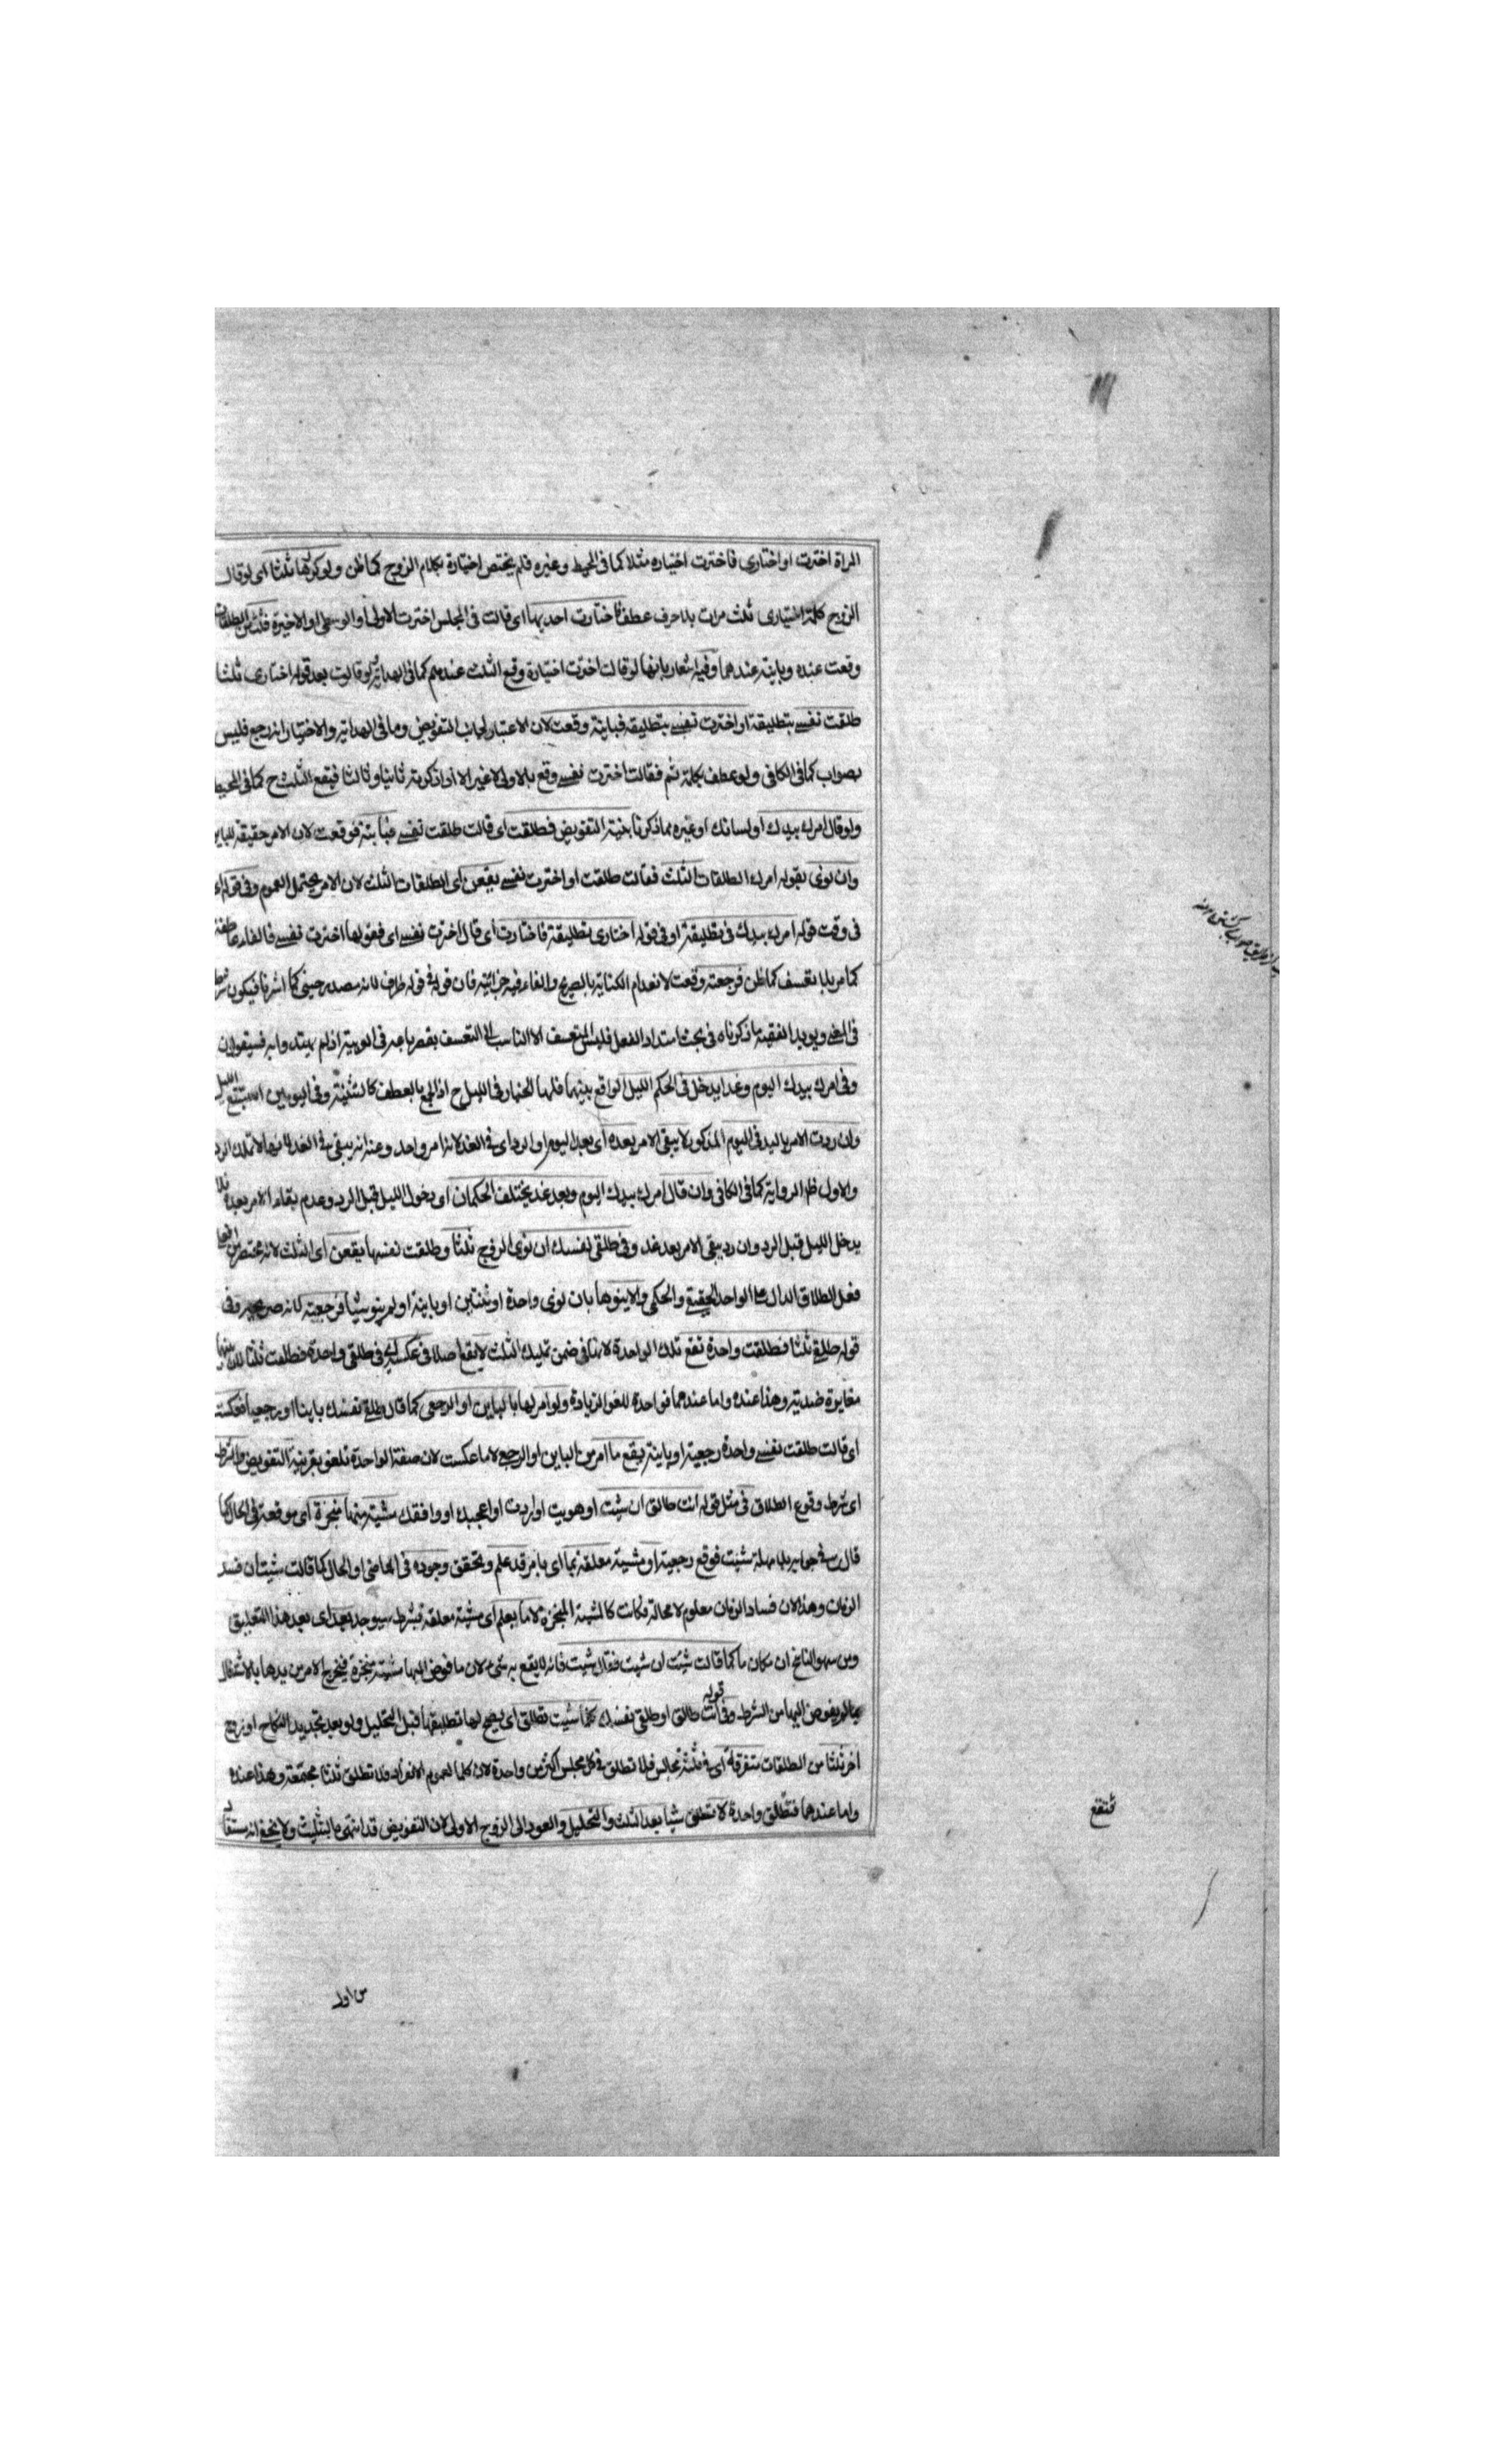 المراة اخترت او اختاري فاخترت اختياره مثلا كما في المحيط وغيره فلم يختص اختيارة بكلام الزوج كما ظن ولو كررها ثلثا اى لو قال
الزوج كلمة اختياري ثلث مرات بلا حرف عطف فاختارت احديها اى قالت في المجلس اخترت الاولى او الوسطى او الاخيرة فثلث الطلقات
وقعت عنده وباينة عندهما وفيه اشعار بانها لو قالت اخترت اختيارة وقع الثلث عندهم كما في الهداية ولو قالت بعد قوله اختارى ثلثا
طلقت نفسي بتطليقة او اخترت نفسي بتطليقة فباينة وقعت لان الاعتبار لجانب التفويض وما في الهداية والاختيار انه رجع فليس
بصواب كما في الكافي ولو عطف بكلمة ثم فقالت اخترت نفسي وقع بالاولى لا غير الا اذا ذكرته ثانيا وثالثا فيقع الثلث ح كما في المحيط
ولو قال امرك بيدك او لسانك او غيره مما ذكرنا بنية التفويض فطلقت اى قالت طلقت نفسي فباينة وقعت لان الامر حقيقة للباين
وان نوى بقوله امرك الطلقات الثلث فقالت طلقت او اخترت نفسي يقعن اى الطلقات الثلث لان الامر يحتمل العموم وفي قوله
في وقت قوله امرك بيدك في تطليقة او في قوله اختارى بتطليقة فاختارت اى قال اخترت نفسي اى فقولها اخترت نفسي فالفاء عاطفة
كما مر بلا تعسف كما ظن فرجعية وقعت لانعدام الكناية بالصريح والفاء فيه جزائية فان قوله في قوله ظرف لانه مصدر حيني كما اشرنا فيكون
في المغني ويويد الفقيه ما ذكرناه في بحث استداد الفعل فليس المتعسف الا الناسب الى التعسف بقصر باعه في العربية اذ لم يهتد وا به فسيقولون
وفي امرك بيدك اليوم وغدا يدخل في الحكم الليل الواقع بينهما فلها الخيار في الليل ح اذ الجمع بالعطف كالتثنية وفي اليومين استتبع الليل
وان ردت الامر باليد في اليوم المذكور لا يبقى الامر بعده اى بعد اليوم او الرد اى في الغد لانه امر واحد وعنه انه يبقى في الغد لانها لا تملك الرد
والاول ظاهر الرواية كما في الكافي وان قال امرك بيدك اليوم وبعد غد يختلف الحكمان اى دخول الليل قبل الرد وعدم بقاء الامر بعده فلا
يدخل الليل قبل الرد وان رد يبقى الامر بعد غد وفي طلقي نفسك ان نوى الزوج ثلثا وطلقت نفسها يقعن اى الثلث لانه مختصر من افعلي
فعل الطلاق الدال على الواحد الحقيقي والحكمي والا ينوها بان نوى واحدة او ثنتين او باينة او لم ينو شيا فرجعية لانه صريح وفي
قوله طلقي ثلثا فطلقت واحدة تقع تلك الواحدة لانها في ضمن تمليك الثلث لا يقع اصلا في عكسه اى في طلقي واحدة فطلقت ثلثا لان بينهما
مغايرة ضدية وهذا عنده واما عندهما فواحدة للغو الزيادة ولو امر لها بالباين او الرجعي كما قال طلقي نفسك باينا او رجعيا فعكست
اى قالت طلقت نفسي واحدة رجعية او باينة يقع ما امر من الباين او الرجعي لا ما عكست لان صفة الواحدة تلغو بقرينة التفويض والشرط
اى شرط وقوع الطلاق في مثل قوله انت طالق ان شئت او هويت او اردت او اعجبك او وافقك مشيتة منها منجزة اى موقعة في الحال كما
قالت في جوابه بلا مهلة شئت فوقع رجعية او مشية معلقة بما اى بامر قد علم وتحقق وجوده في الماضي او الحال كما قالت شئت ان فسد
الزمان وهذا لان فساد الزمان معلوم لا محالة فكانت كالمشية المنجزة لا ما يعلم اى مشية معلقة بشرط سيوجد بعد اى بعد هذا التعليق
ومن سهو الناسخ ان مكان ما كما قالت شئت ان شئت فقال شئت فانه لا يقع به شئ لان ما فوض اليها مشية منجزة فيخرج الامر من يدها بالاشتغال
بما لم يفوض اليها من الشرط وفي قوله انت طالق او طلقي نفسك كلما شئت تطلق اى يصح لها تطليقها قبل التحليل ولو بعد تجديد النكاح او زوج
اخر ثلثا من الطلقات متفرقة اى في ثلثة مجالس فلا تطلق في كل مجلس اكثر من واحدة لان كلما لعموم الانفراد فلا تطلق ثلثا مجتمعة وهذا عنده
واما عندهما فتطلق واحدة لا تطلق شيا بعد الثلث والتحليل والعود الى الزوج الاول لان التفويض قد انتهى بالتثليث ولا يخفى انه مستفاد
فتقع
من اول